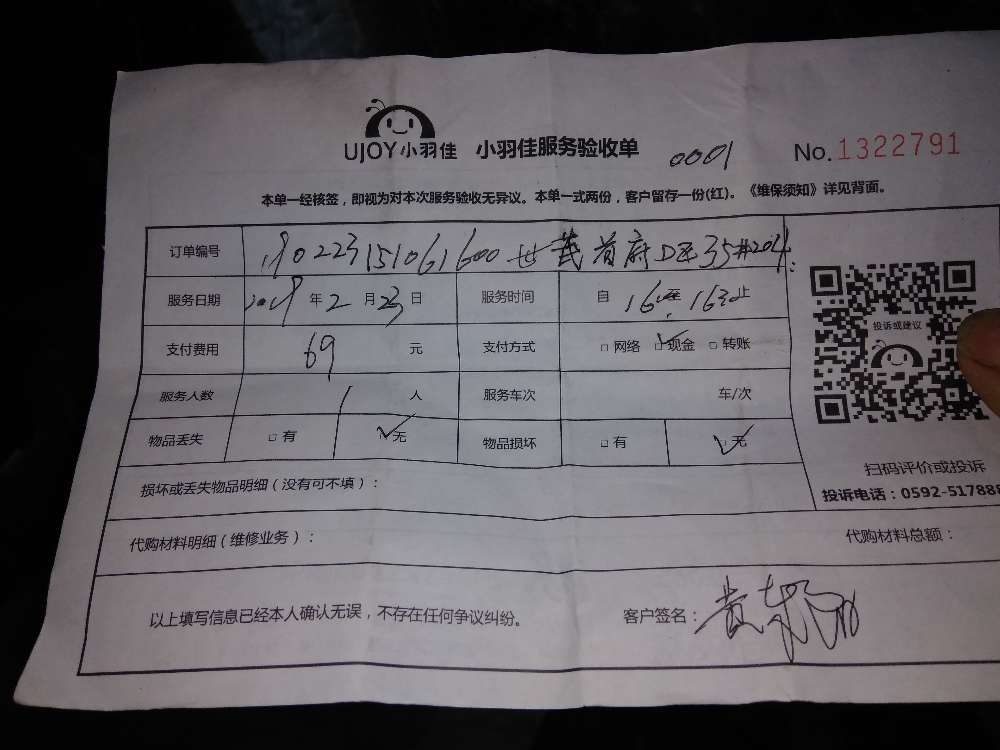 UJOY小羽佳 小羽佳服务验收单 0001 No.1322791
本单一经核签，即视为对本次服务验收无异议。本单一式两份，客户留存一份(红)。《维保须知》详见背面。
订单编号 190223151061600 世茂首府D区35#204
服务日期 2019年2月23日 服务时间 自16至16:30止
支付费用 69元 支付方式 □网络 ☑现金 □转账
服务人数 1人 服务车次 车/次
物品丢失 □有 ☑无 物品损坏 □有 ☑无
投诉或建议
扫码评价或投诉
投诉电话：0592-517888
损坏或丢失物品明细（没有可不填）：
代购材料明细（维修业务）： 代购材料总额：
以上填写信息已经本人确认无误，不存在任何争议纠纷。 客户签名：黄